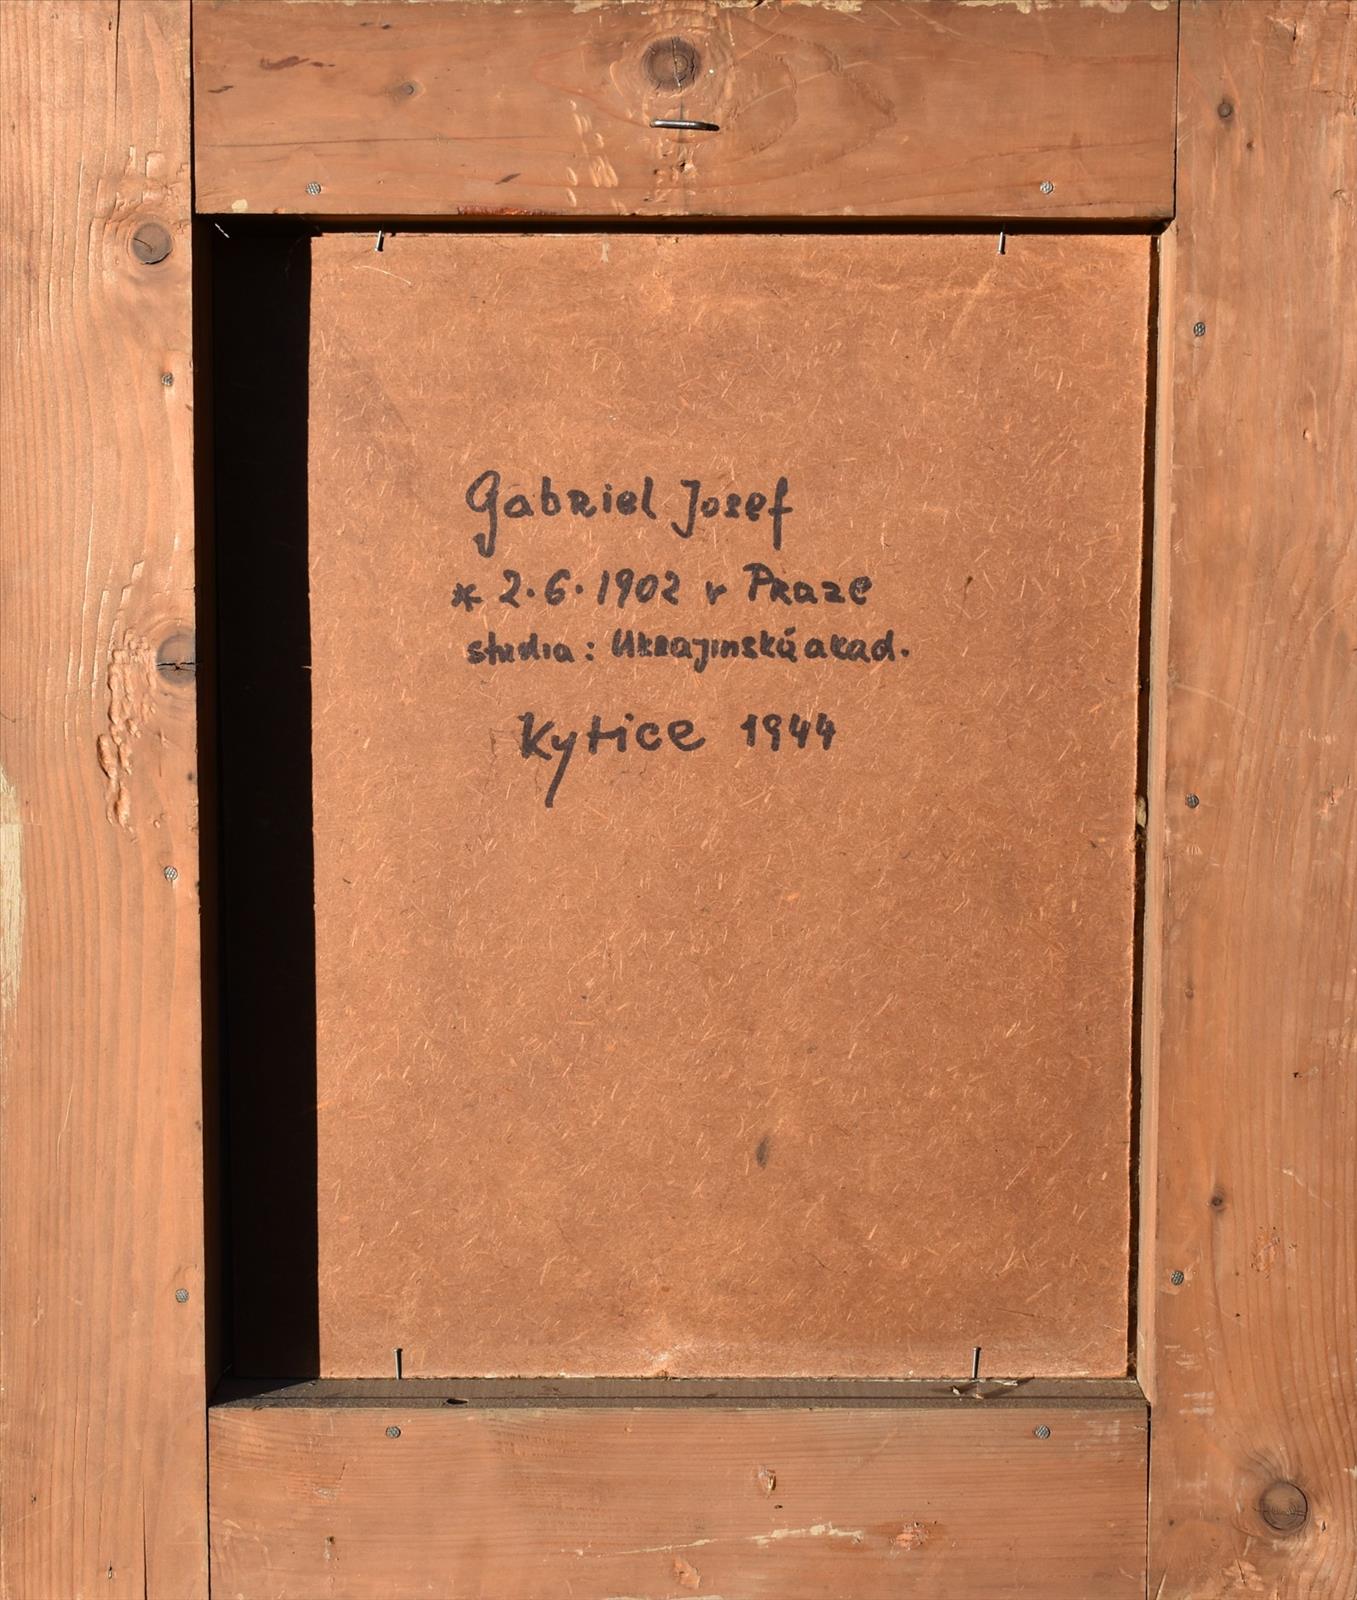 Gabriel Josef
* 2.6.1902 v Praze
studia: Ukrajinská akad.
Kytice 1944